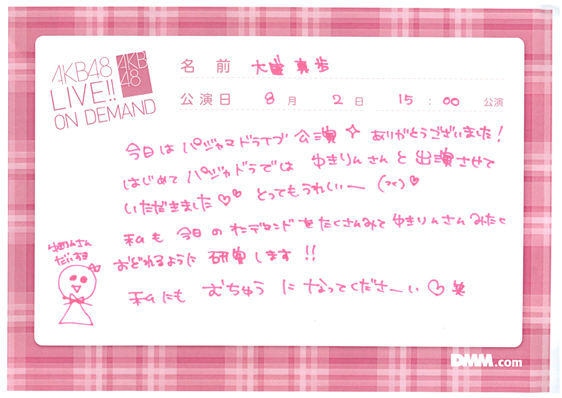 AKB48
LIVE!!
ON DEMAND
AKB
48
名前 大盛真歩
公演日 8月 2日 15:00 公演
今日は パジャマドライブ公演☆ ありがとうございました!
はじめて パジャドラでは ゆきりんさんと出演させて
いただきました♡♡ とってもうれしいー
私も 今日の オンデマンドをたくさんみて ゆきりんさんみたく
おどれるように 研究します!!
私にも むちゅう に なってくださーい♡
ゆきりんさん
だいすき
DMM.com